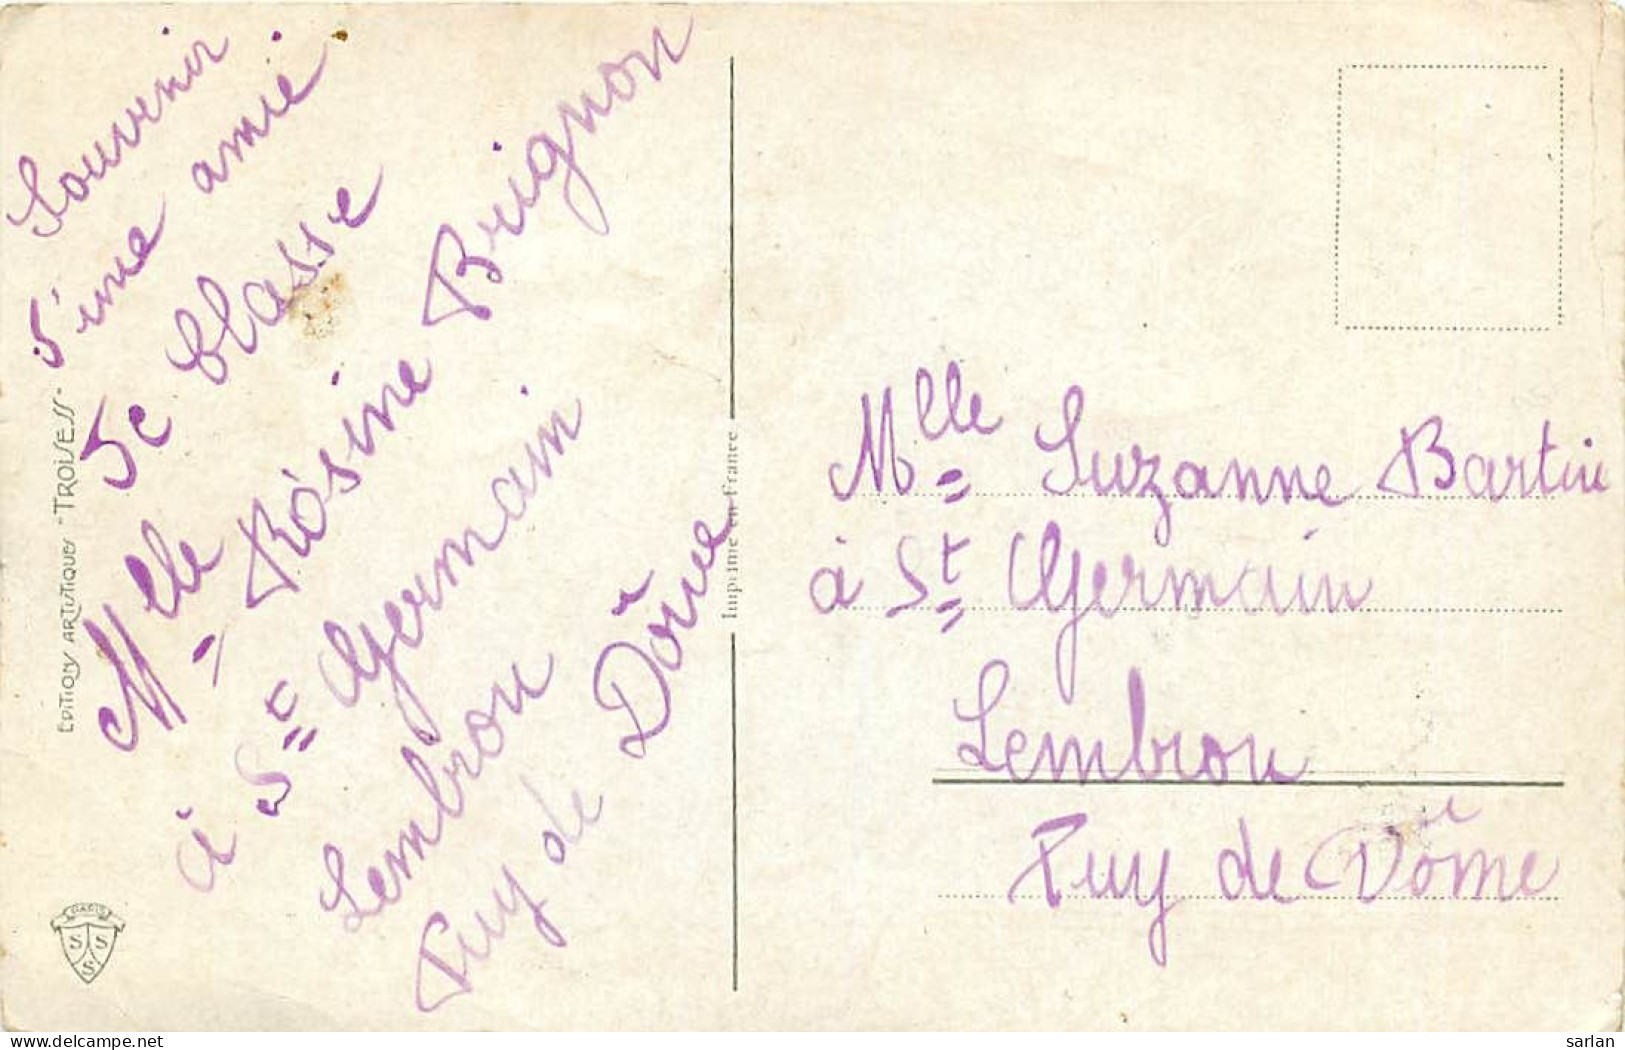 Souvenir
d'une amie
Se Classe
Mlle Rósine Brignon
à St Germain
Lembron
Puy de Dôme
EDITION ARTISTIQUE - TROISESS -
PARIS
S S
S
Imprimé en France
Mlle Suzanne Bartin
à St Germain
Lembron
Puy de Dôme
delcampe.net
sarlan